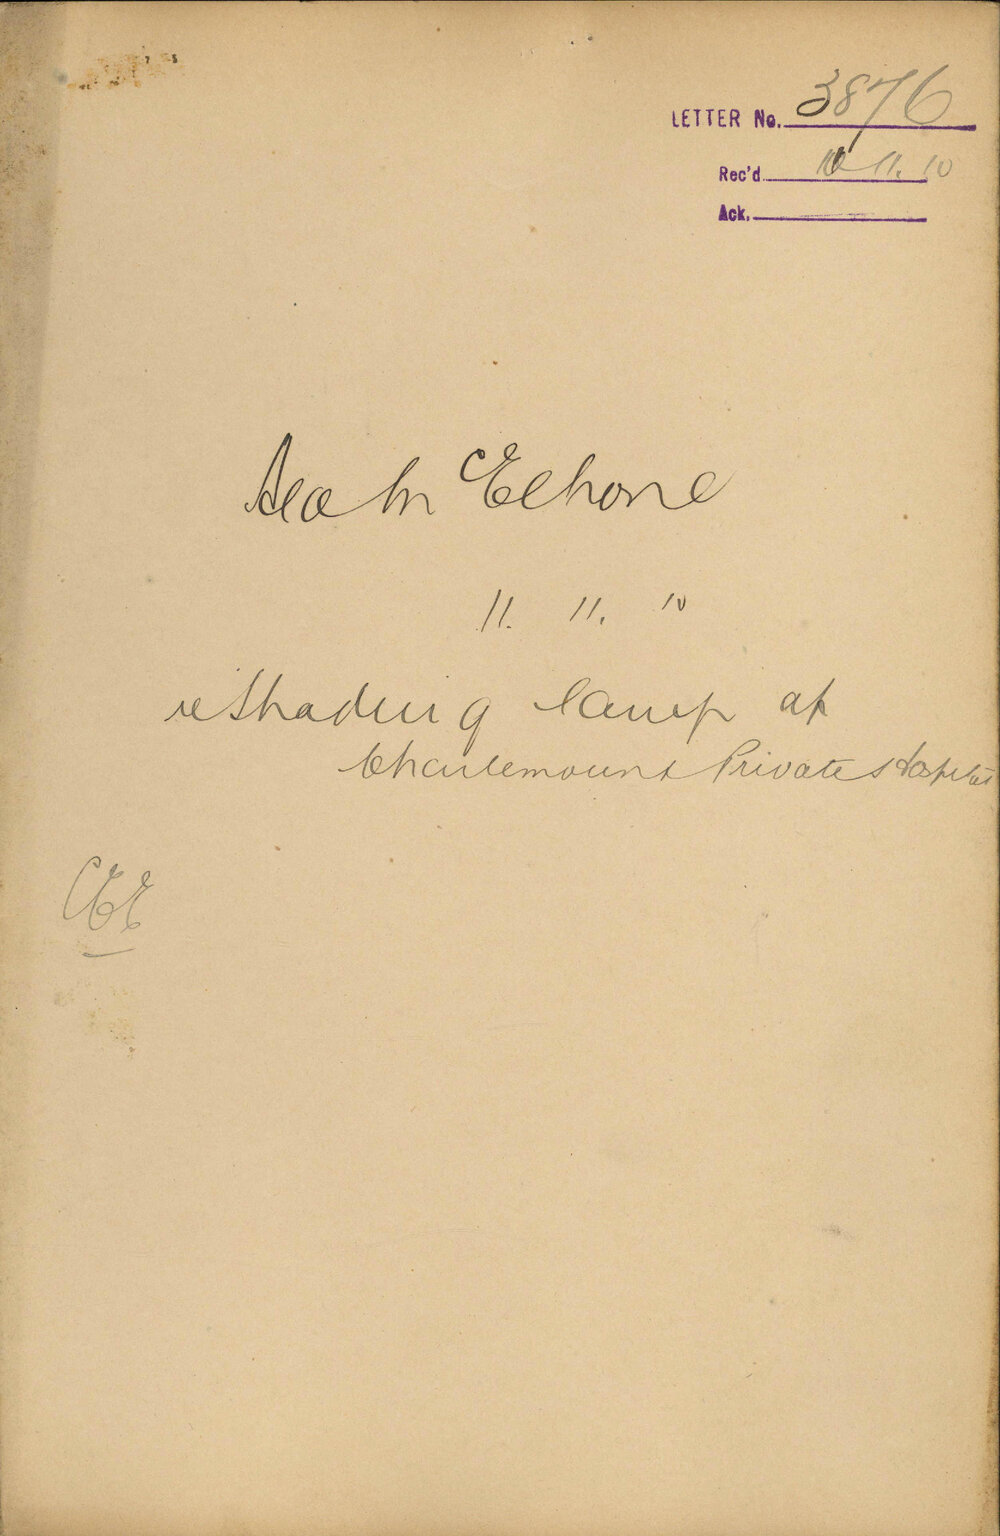 LETTER No. 3876
Rec'd 10 11. 10
Ack.
Geo McElhone
11. 11. 10
re Shading lamp at
Charlemount Private Hospital
CEE